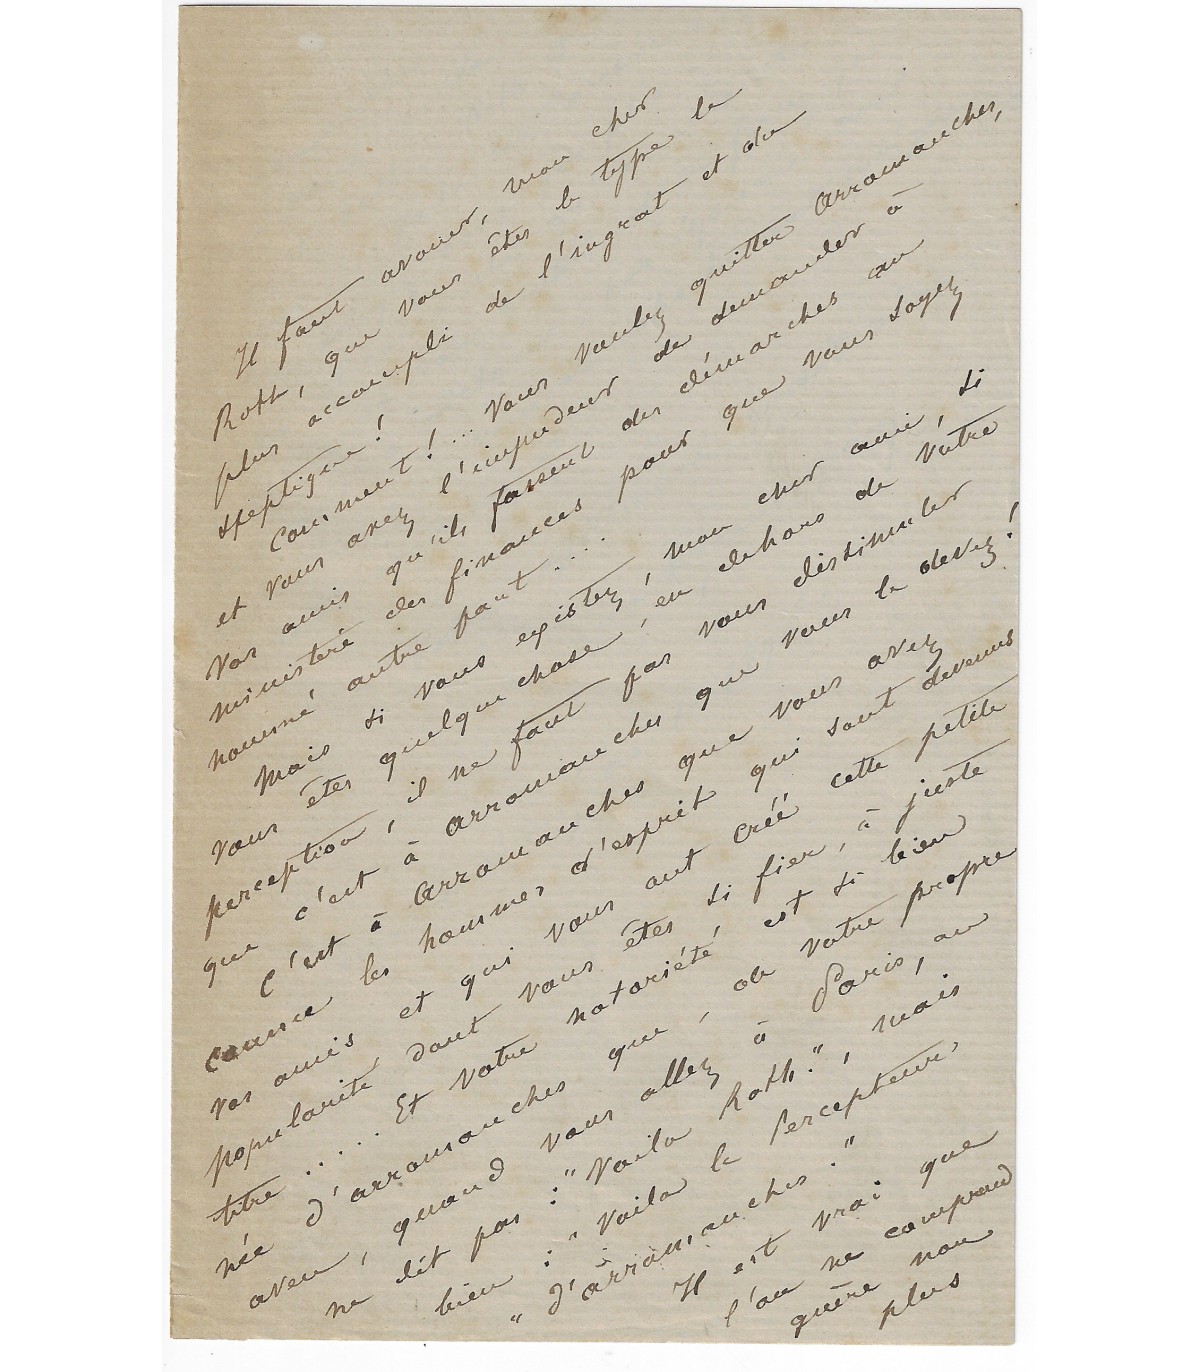 Il faut avouer, mon cher
Roth, que vous êtes le type le
plus accompli de l'ingrat et du
skeptique !
Comment ! ... Vous voulez quitter Arromanches,
et vous avez l'impudeur de demander à
vos amis qu'ils fassent des démarches au
ministère des finances pour que vous soyez
nommé autre part ...
Mais si vous existez, mon cher ami, si
vous êtes quelque chose, en dehors de votre
perception, il ne faut pas vous dissimuler
que c'est à Arromanches que vous le devez !
C'est à Arromanches que vous avez
connu les hommes d'esprit qui sont devenus
vos amis et qui vous ont créé cette petite
popularité dont vous êtes si fier, à juste
titre ..... Et votre notoriété est si bien
née d'Arromanches que, de votre propre
aveu, quand vous allez à Paris, on
ne dit pas : "Voila Roth.", mais
bien : "Voila le Percepteur
"d'Arromanches."
Il est vrai que
l'on ne comprend
guère non
plus